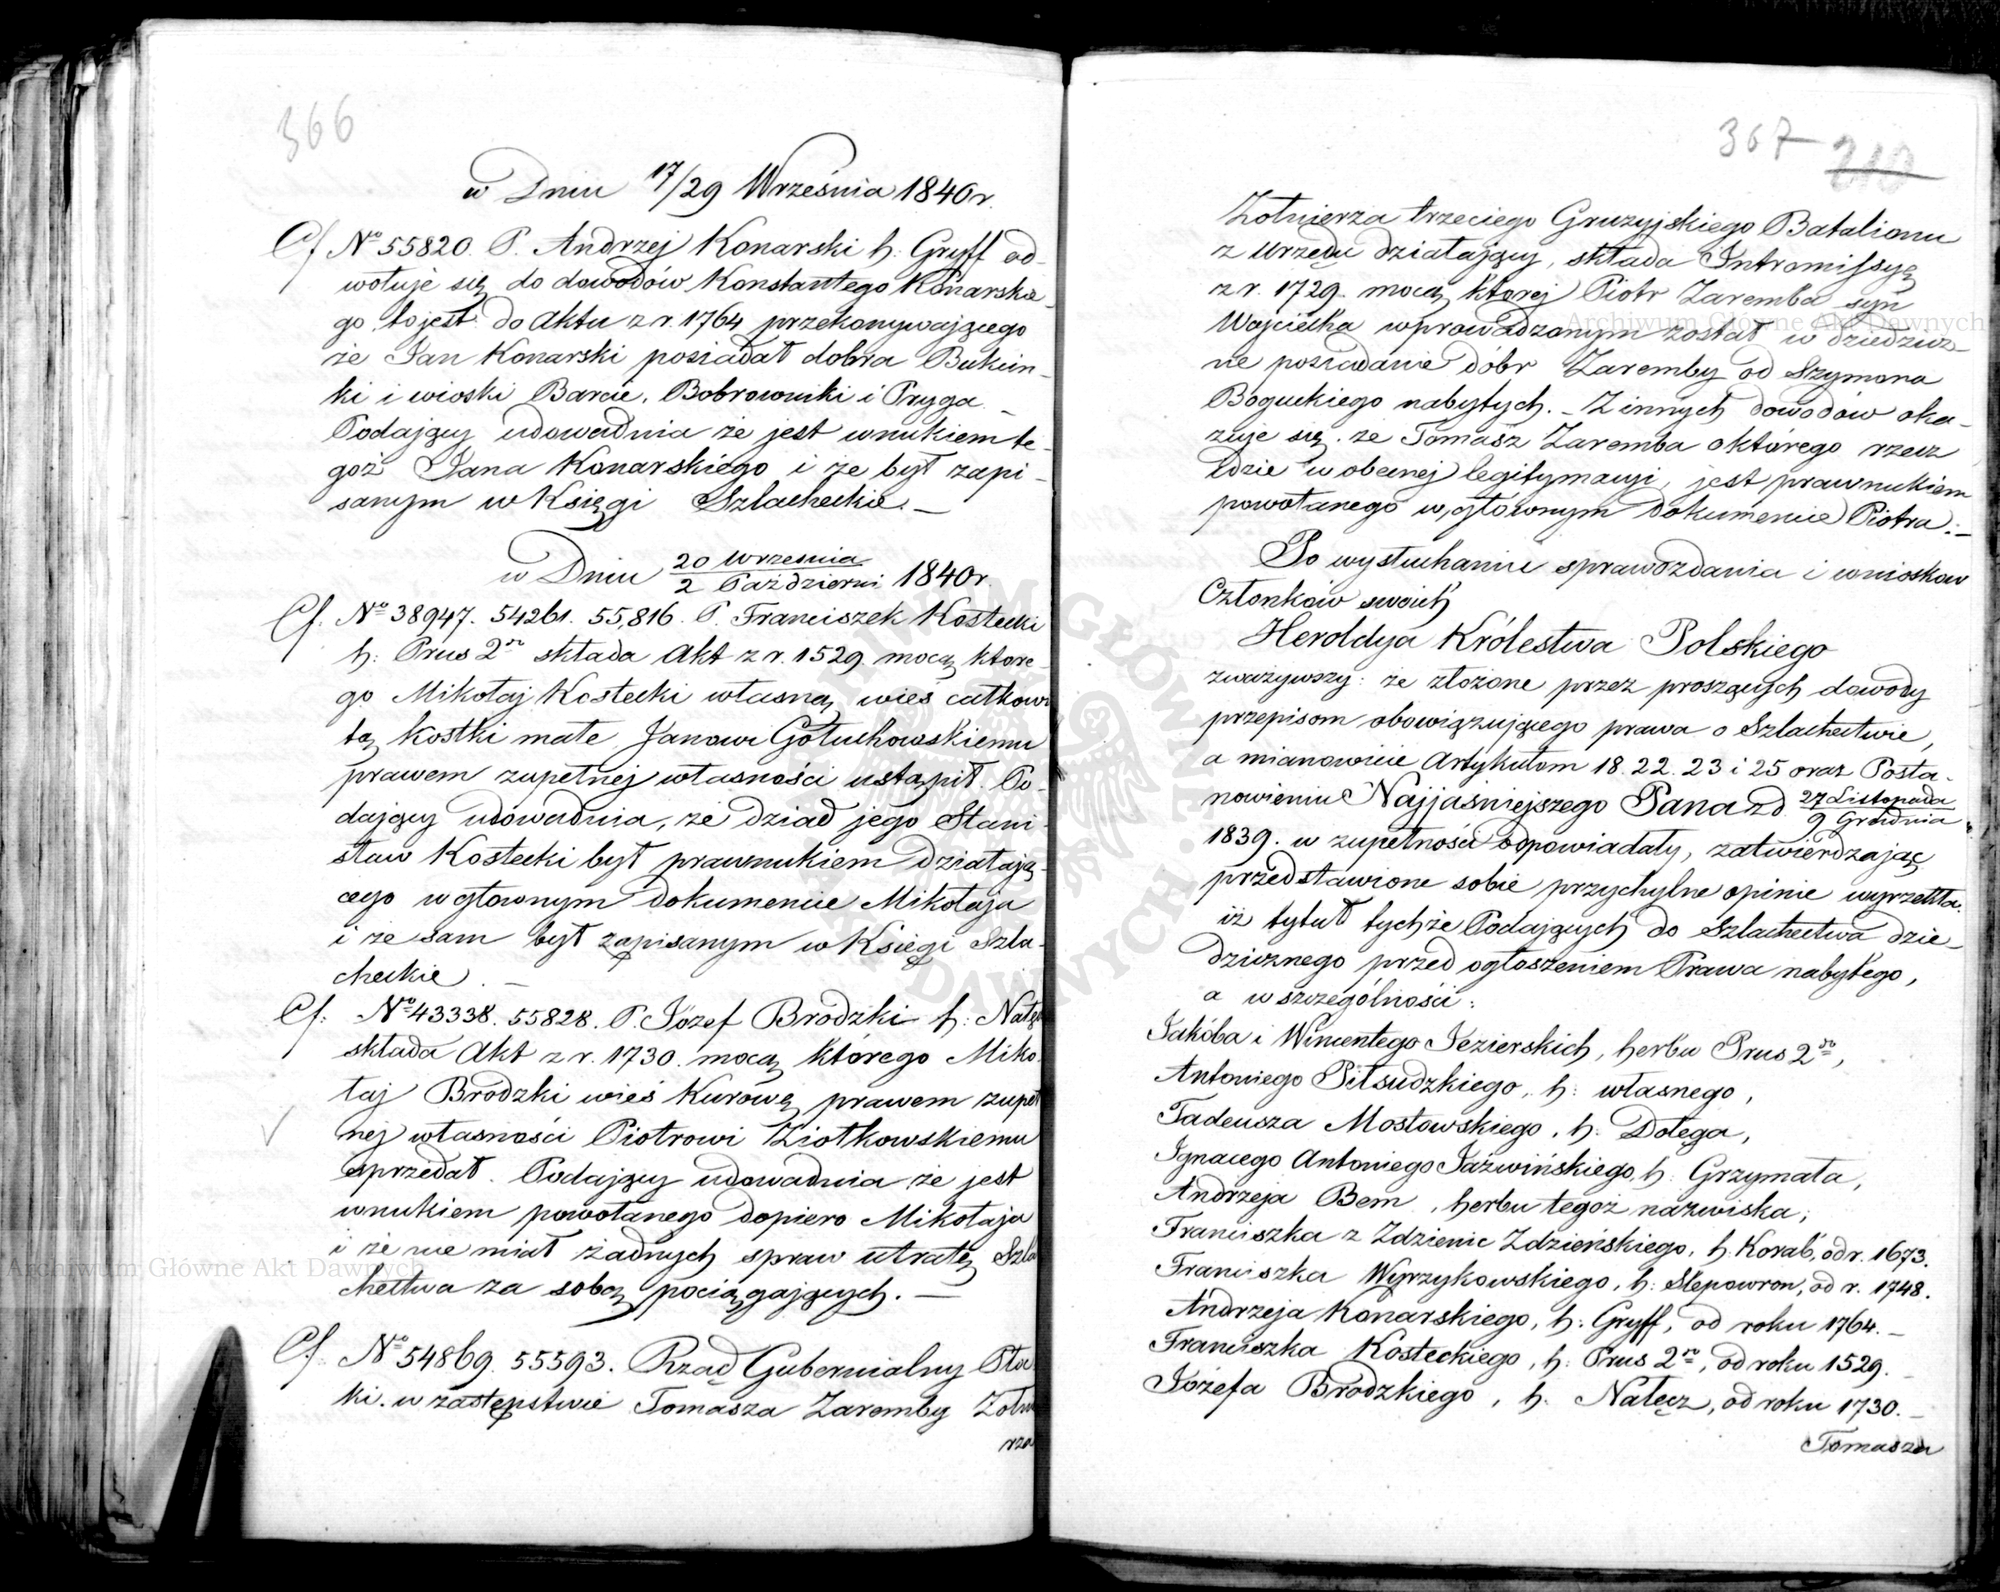 366
w Dniu 17/29 Września 1840 r.
Cf. No 55820. P. Andrzej Konarski h: Gryff od-
wołuje się do dowodów Konstantego Konarskie-
go to jest do Aktu z r. 1764 przekonywającego
że Jan Konarski posiadał dobra Bukcin-
ki i wioski Barcie, Bobrowniki i Pryga _
Podający udowadnia że jest wnukiem te-
goż Jana Konarskiego i że był zapi-
sanym w Księgi Szlacheckie. _
w Dniu 20 Września / 2 Październi 1840 r.
Cf. No 38947. 54261. 55,816. P. Franciszek Kostecki
h: Prus 2o składa Akt z r. 1529. mocą które-
go Mikołaj Kostecki własną wieś całkowi
tą Kostki małe Janowi Gołuchowskiemu
prawem zupełnej własności ustąpił. Po-
dający udowadnia, że dziad jego Stani-
sław Kostecki był prawnukiem działają-
cego w głownym dokumencie Mikołaja
i że sam był zapisanym w Księgi Szla-
checkie. _
Cf: No 43338. 55828. P. Józef Brodzki h: Nałęcz
składa Akt z r. 1730. mocą którego Miko-
łaj Brodzki wieś Kurowę prawem zupeł
nej własności Piotrowi Ziołkowskiemu
sprzedał. Podający udowadnia że jest
wnukiem powołanego dopiero Mikołaja
i że nie miał żadnych spraw utratę Szla
chectwa za sobą pociągających. _
Cf: No 54869. 55593. Rząd Gubernialny Pło
ki. w zastępstwie Tomasza Zaremby Żołn
rza
367 210
Żołnierza trzeciego Gruzyjskiego Batalionu
z Urzędu działający, składa Intromissyą
z r. 1729. mocą ktorej Piotr Zaremba syn
Wojciecha wprowadzonym został w dziedzicz-
ne posiadanie dóbr Zaremby od Szymona
Boguckiego nabytych. _ Z innych dowodów oka-
zuje się. że Tomasz Zaremba o którego rzecz
idzie w obecnej legitymacyi, jest prawnukiem
powołanego w głównym dokumencie Piotra. _
Po wysłuchaniu sprawozdania i wniosków
Członków swoich
Heroldya Królestwa Polskiego
zważywszy: że złożone przez proszących dowody
przepisom obowiązującego prawa o Szlachectwie,
a mianowicie Artykułom 18. 22. 23 i 25 oraz Posta-
nowieniu Najjaśniejszego Pana z d. 27 Listopada / 9 Grudnia
1839. w zupełności odpowiadały, zatwierdzając
przedstawione sobie przychylne opinie wyrzekła:
iż tytuł tychże Podających do Szlachectwa dzie-
dzicznego przed ogłoszeniem Prawa nabytego,
a w szczególności:
Jakóba i Wincentego Jezierskich, herbu Prus 2o,
Antoniego Piłsudzkiego, h: własnego,
Tadeusza Mostowskiego, h: Dołęga,
Ignacego Antoniego Jaźwińskiego, h: Grzymała,
Andrzeja Bem, herbu tegoż nazwiska;
Franciszka z Zdzienic Zdzieńskiego, h: Korab, od r. 1673.
Franciszka Wyrzykowskiego, h: Slepowron, od r. 1748.
Andrzeja Konarskiego, h: Gryff, od roku 1764. _
Franciszka Kosteckiego, h: Prus 2o, od roku 1529. _
Józefa Brodzkiego, h. Nałęcz, od roku 1730. _
Tomasza
Archiwum Główne Akt Dawnych
Archiwum Główne Akt Dawnych
ARCHIWUM GŁÓWNE AKT DAWNYCH